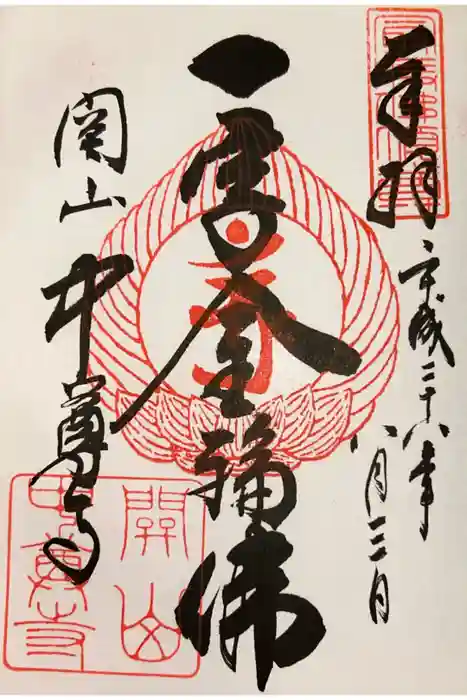 奉拝
平成二十八年
八月三日
一字金輪佛
関山
中尊寺
關山
中尊寺